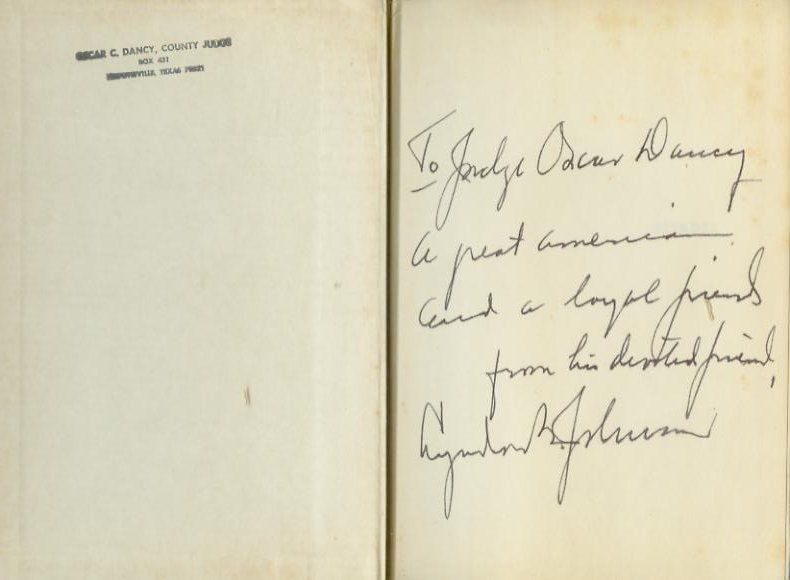 OSCAR C. DANCY, COUNTY JUDGE
BOX 431
BROWNSVILLE, TEXAS
To Judge Oscar Dancy
a great american
and a loyal friend
from his devoted friend,
Lyndon B. Johnson